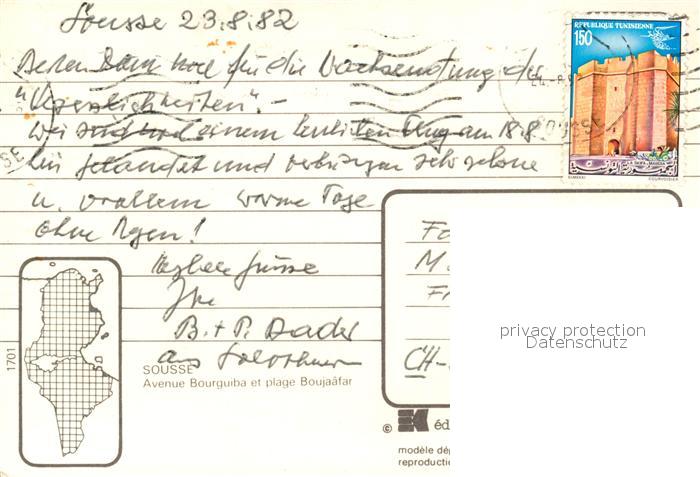 Sousse 23.8.82
Besten Dank noch für die Nachsendung der
"Vergesslichkeiten".-
Wir sind nach einem Flug am 18.8
hier gelandet und verbringen sehr schöne
u. vorallem warme Tage
ohne Regen!
Herzliche Grüsse
Ihre
B. + P.
aus Solothurn
REPUBLIQUE TUNISIENNE
150
SKIFA - MAHDIA
الجمهورية التونسية
COURVOISIER
SOUSSE
Fa
M.
F
CH-
privacy protection
Datenschutz
1701
SOUSSE
Avenue Bourguiba et plage Boujaâfar
© éd
modèle dép
reproductio